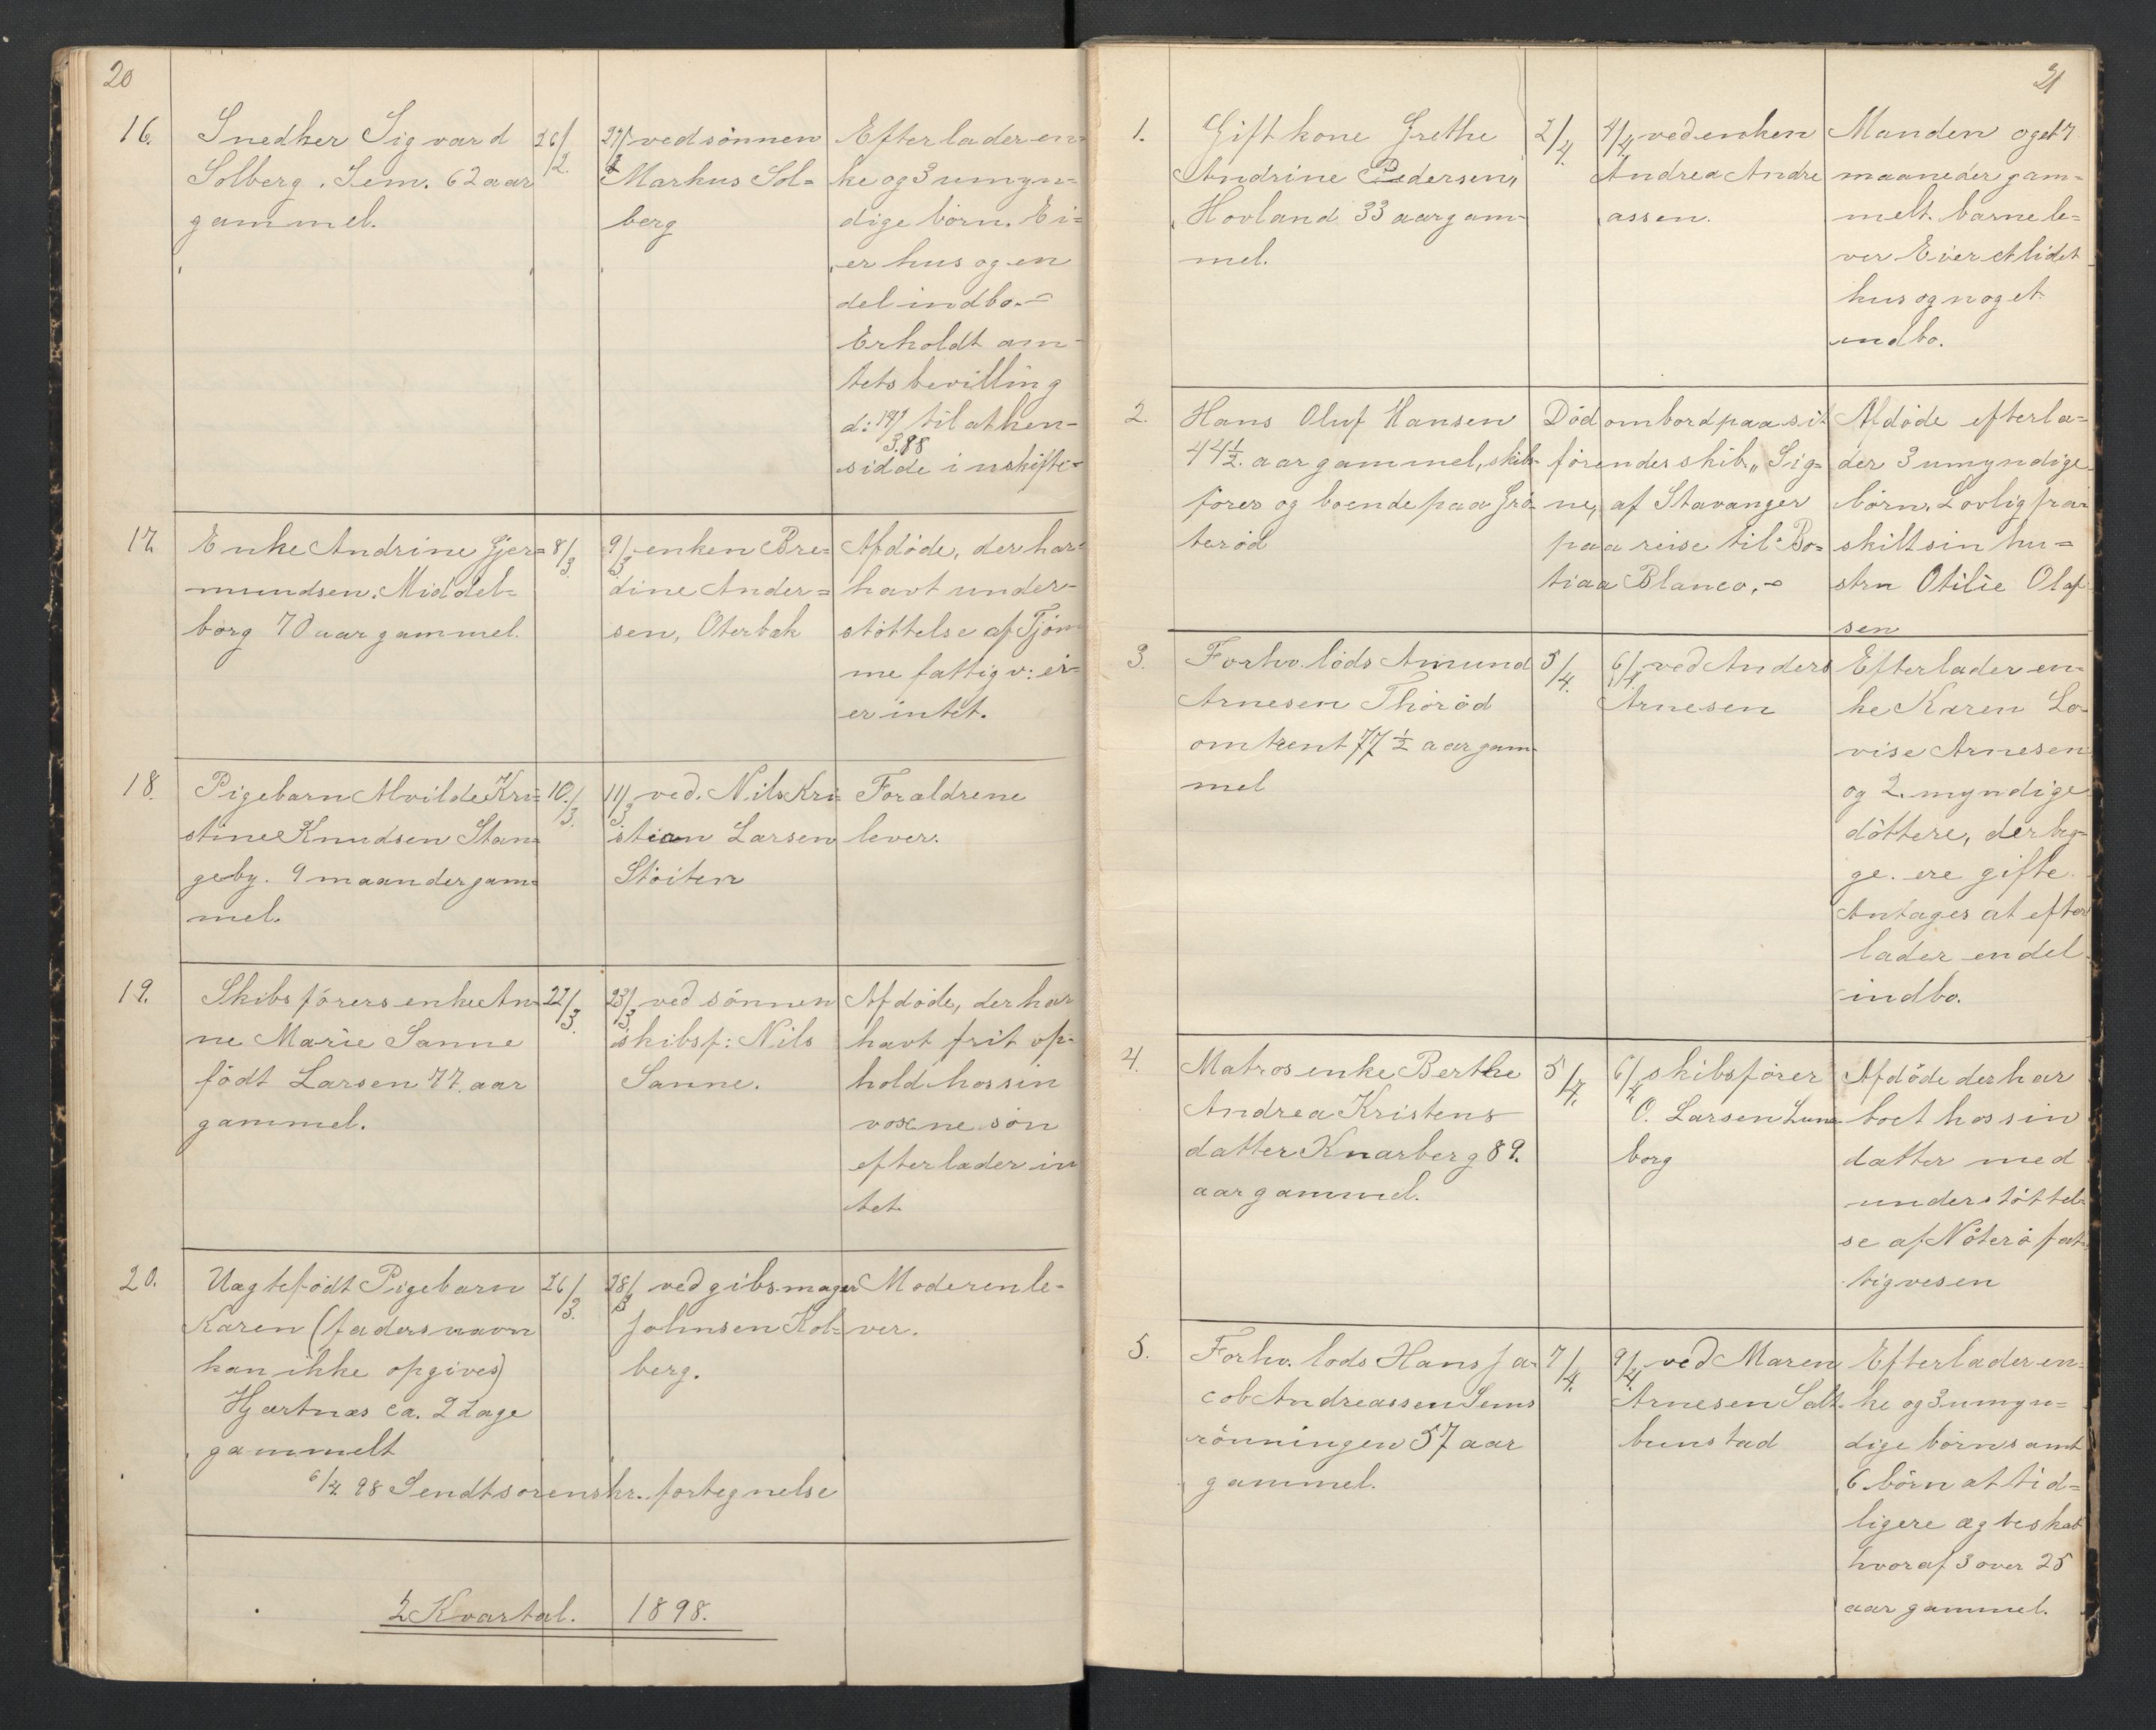 20
16.
Snedker Sigvard
Solberg. Sem. 62 aar
gammel.
26/2.
27/2 ved sönnen
Markus Sol=
berg
Efterlader en=
ke og 3 umyn=
dige börn. Ei=
er hus og en
del indbo.-
Erholdt am-
tets bevilling
d: 19/3.98 til at hen-
sidde i uskifte-
17.
Enke Andrine Gjer=
mundsen. Middel=
borg 70 aar gammel.
8/3.
9/3. enken Bre=
dine Ander=
sen, Oterbæk
Afdöde, der har
havt under-
stöttelse af Tjöm
me fattigv: ei-
er intet.
18.
Pigebarn Alvilde Kri=
stine Knudsen Stan=
geby. 9 maander gam=
mel.
10./3.
11/3 ved. Nils Kri-
stian Larsen
Stoiten
Foraldrene
lever.
19.
Skibsförers enke An-
ne Marie Sanne
födt Larsen 77. aar
gammel.
22/3.
23/3. ved sönnen
skibsf: Nils
Sanne.
Afdöde, der har
havt frit op-
hold hos sin
voxne sön
efterlader in
tet.
20.
Uægtefödt Pigebarn
Karen (faders navn
kan ikke opgives)
Hjertnæs ca. 2 dage
gammelt
26/3.
28/3 ved gibsmager
Johnsen Kol=
berg.
Moderen le-
ver.
6/4. 98 Sendt sorenskr. fortegnelse
2 Kvartal. 1898.
21
1.
Gift kone Grethe
Andrine Pedersen,
Hovland 33 aar gam-
mel.
2/4.
4/4. ved enken
Andrea Andre
assen.
Manden og et 7
maaneder gam=
melt. barn le=
ver Eier et lidet
hus og noget
indbo.
2.
Hans Oluf Hansen
44 1/2. aar gammel, skibs-
förer og boende paa Grö-
teröd
Död ombord paa sit
förendes skib „Sig=
ne„ af Stavanger
paa reise til Bo=
tiaa Blanco.-
Afdöde efterla=
der 3 umyndige
börn. Lovlig fra
skilt sin hu=
stru Otilie Olaf
sen
3.
Forhv. lods Amund
Arnesen Thöröd
omtrent 77 1/2 aar gam-
mel
5/4.
6/4. ved Anders
Arnesen
Efterlader en-
ke Karen Lo-
vise Arnesen
og 2. myndige
döttere, der beg-
ge. ere gifte.
Antages at efter
lader endel
indbo.
4.
Matros enke Berthe
Andrea Kristens
datter Knarberg 89.
aar gammel.
5/4.
6/4. skibsförer
O. Larsen Lune-
borg
Afdöde der har
boet hos sin
datter med
understöttel-
se af Nöterö fat-
tigvesen
5.
Forhv. lods Hans Ja-
cob Andreassen Sems
rönningen 57 aar
gammel.
7/4.
9/4. ved Maren
Arnesen Salt.
bunstad
Efterlader en-
ke og 3 umyn=
dige börn samt
6 börn at tid=
ligere ægteskab
hvoraf 3 over 25
aar gammel.